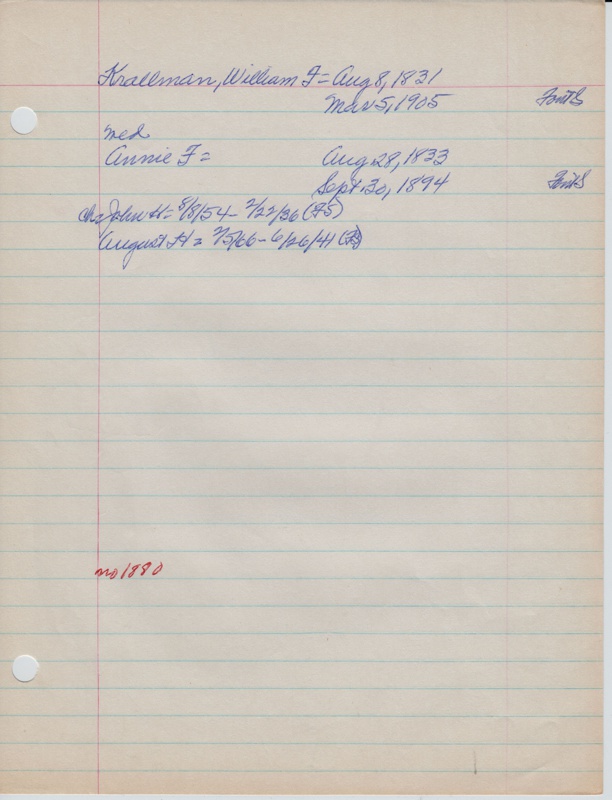 Krallman, William F = Aug 8, 1831
Mar 5, 1905 FontS
med
Annie F = Aug 28, 1833
Sept 30, 1894 FontS
Ch= John H = 8/8/54 - 2/22/36 (FS)
August H = 2/5/66 - 6/26/41
no 1880